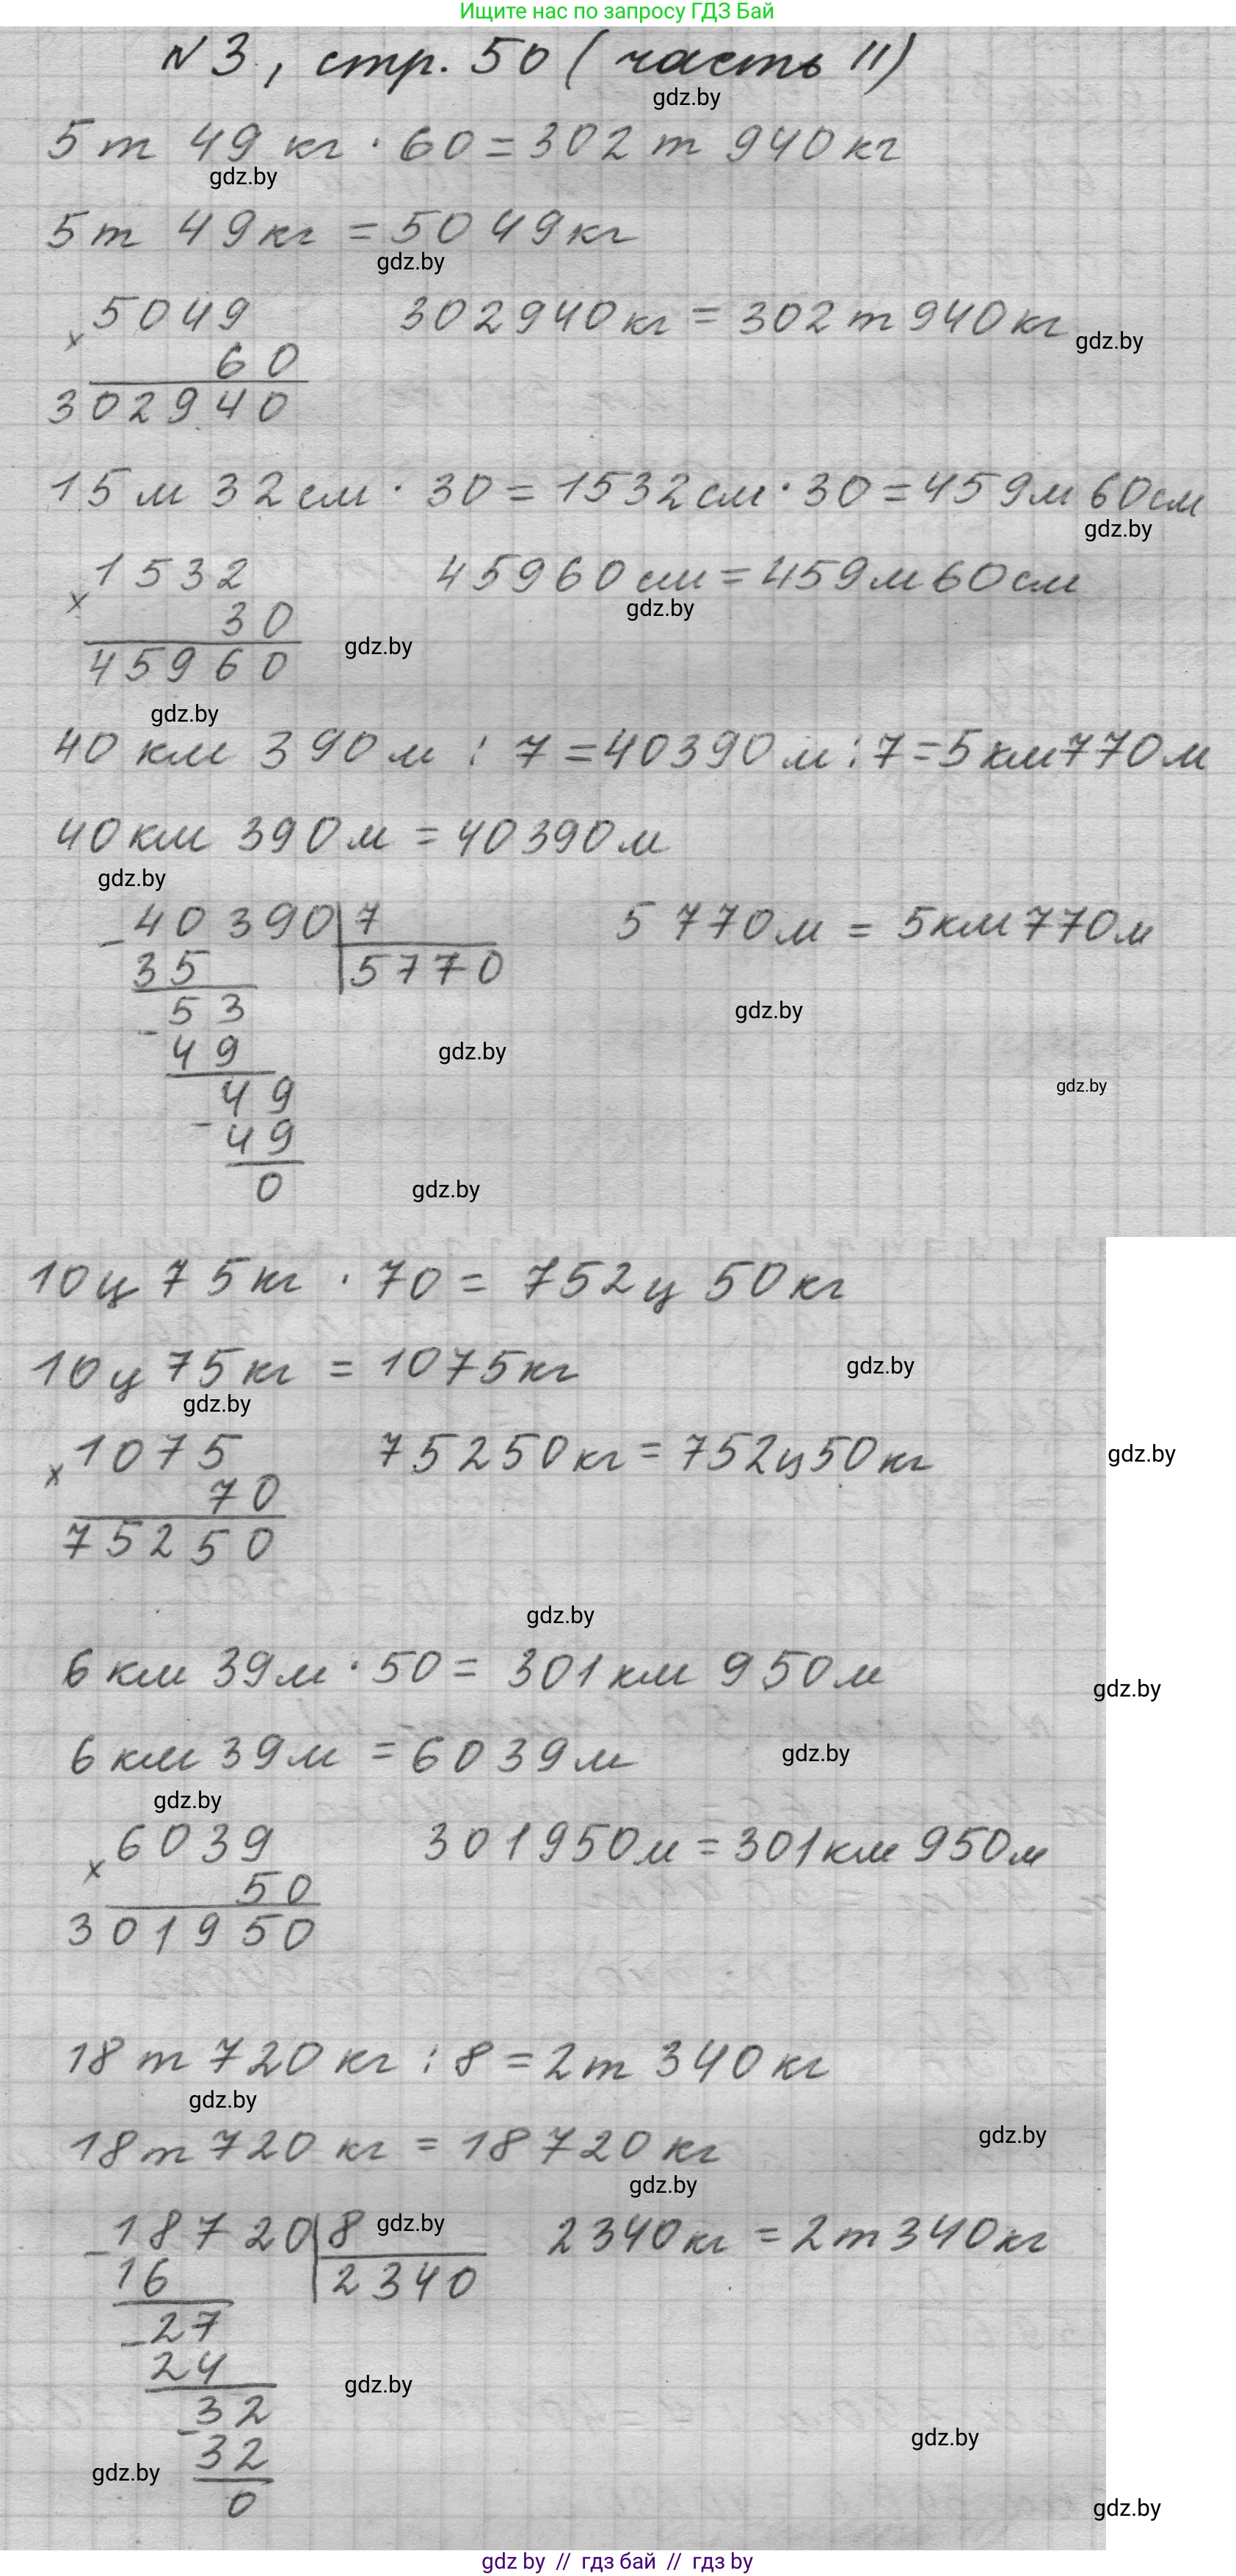 Ищите нас по запросу ГДЗ Бай
N 3, стр. 50 (часть II)
gdz.by
5 т 49 кг · 60 = 302 т 940 кг
gdz.by
5 т 49 кг = 5049 кг
gdz.by
5049 302940 кг = 302 т 940 кг
gdz.by
x 60
302940
15 м 32 см · 30 = 1532 см · 30 = 459 м 60 см
gdz.by
1532 45960 см = 459 м 60 см
gdz.by
x 30
gdz.by
45960
gdz.by
40 км 390 м : 7 = 40390 м : 7 = 5 км 770 м
40 км 390 м = 40390 м
gdz.by
- 40390 | 7 5 770 м = 5 км 770 м
35 5770
53
gdz.by
- 49
gdz.by
49
gdz.by
- 49
0
gdz.by
10 ц 75 кг · 70 = 752 ц 50 кг
10 ц 75 кг = 1075 кг
gdz.by
gdz.by
x 1075 75250 кг = 752 ц 50 кг
gdz.by
70
75250
gdz.by
6 км 39 м · 50 = 301 км 950 м
gdz.by
6 км 39 м = 6039 м
gdz.by
gdz.by
x 6039 301950 м = 301 км 950 м
50
301950
18 т 720 кг : 8 = 2 т 340 кг
gdz.by
18 т 720 кг = 18720 кг
gdz.by
gdz.by
- 18720 | 8 2340 кг = 2 т 340 кг
gdz.by
16 2340
- 27
24
gdz.by
- 32
gdz.by
32
gdz.by
0
gdz.by
gdz by // гдз бай // гдз by